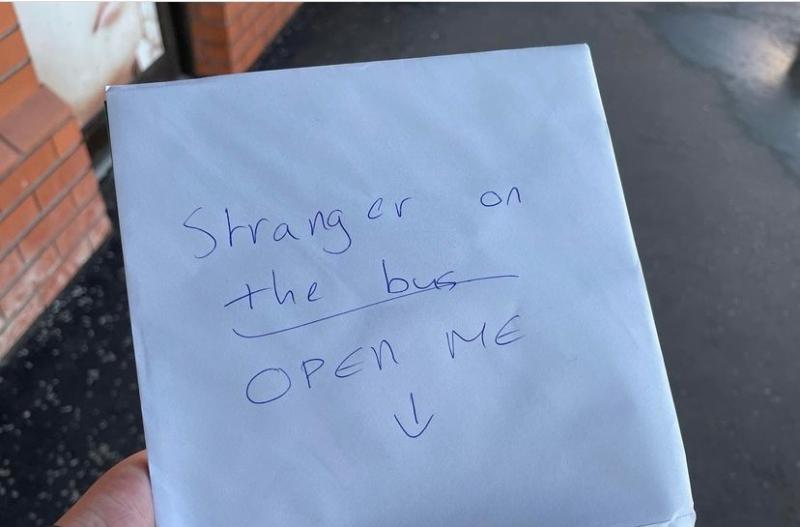 Stranger on
the bus
OPEN ME
↓